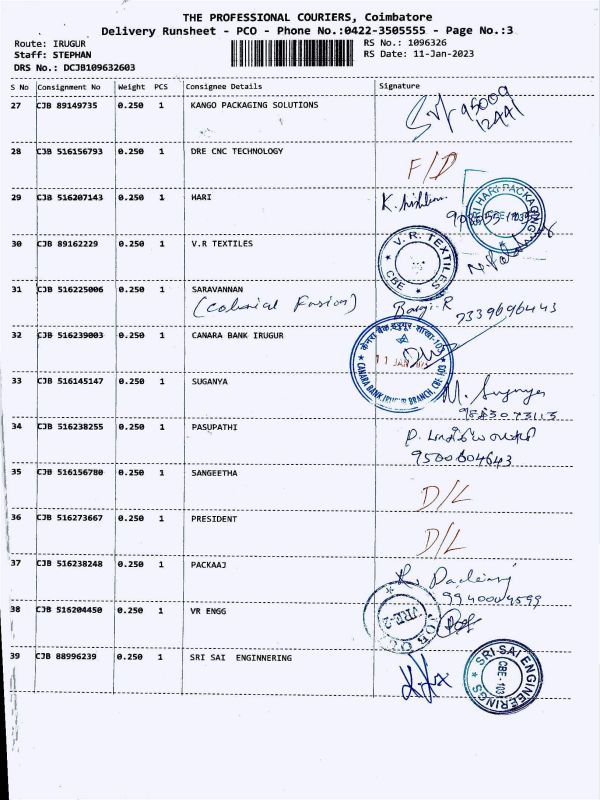 THE PROFESSIONAL COURIERS, Coimbatore
Delivery Runsheet - PCO - Phone No.:0422-3505555 - Page No.:3
Route: IRUGUR
RS No.: 1096326
Staff: STEPHAN
RS Date: 11-Jan-2023
DRS No.: DCJB109632603
S No Consignment No Weight PCS Consignee Details Signature
27 CJB 89149735 0.250 1 KANGO PACKAGING SOLUTIONS
28 CJB 516156793 0.250 1 DRE CNC TECHNOLOGY F/D
29 CJB 516207143 0.250 1 HARI
SRI HARI PACKAGING
30 CJB 89162229 0.250 1 V.R TEXTILES
V.R. TEXTILES
CBE
31 CJB 516225006 0.250 1 SARAVANNAN
(Colonial Fusion) 7339696443
32 CJB 516239003 0.250 1 CANARA BANK IRUGUR
CANARA BANK, IRUGUR BRANCH, CBE-103
33 CJB 516145147 0.250 1 SUGANYA
34 CJB 516238255 0.250 1 PASUPATHI
9500604643
35 CJB 516156780 0.250 1 SANGEETHA D/L
36 CJB 516273667 0.250 1 PRESIDENT D/L
37 CJB 516238248 0.250 1 PACKAAJ
9940004599
38 CJB 516204450 0.250 1 VR ENGG
39 CJB 88996239 0.250 1 SRI SAI ENGINNERING
SRI-SAI ENGINEERINGS
CBE-103